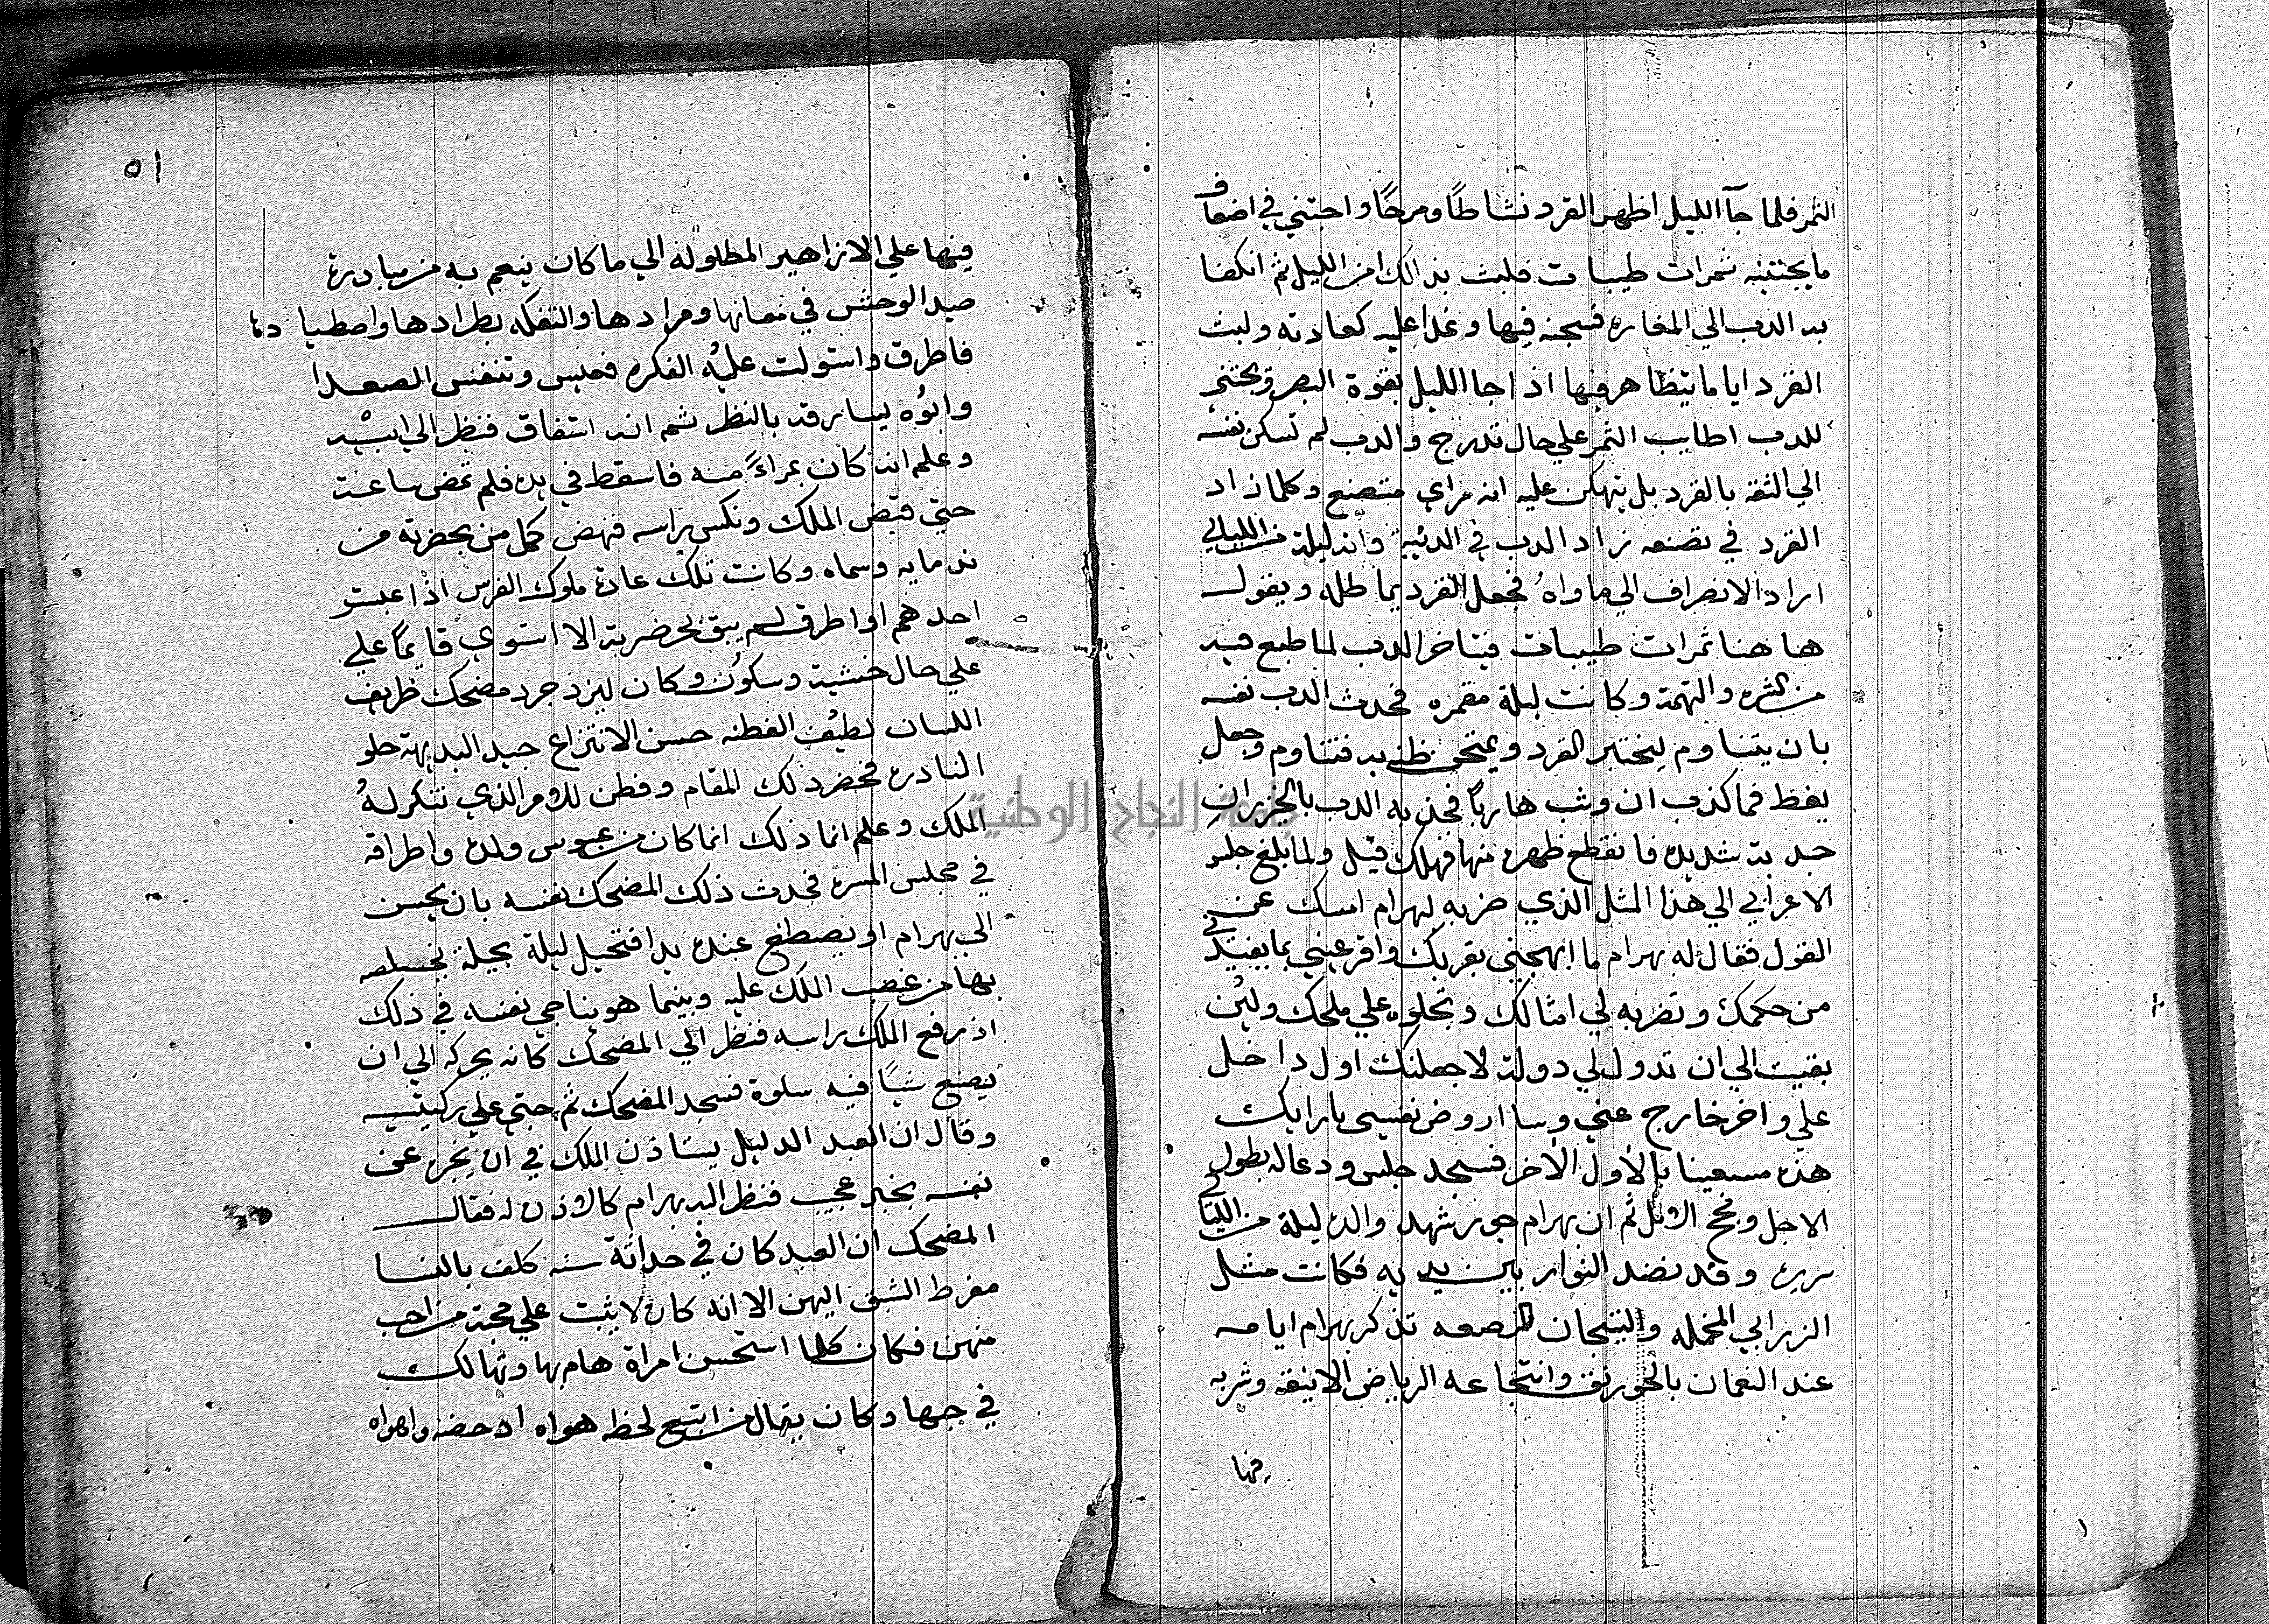 الثمر فلما جآ الليل اظهر القرد نشاطاً ومرحاً واجتني في اضعاف
ما يجتنيه ثمرات طيبات فلبث بذالك امن الليل ثم انكفا
به الدب الي المغاره فسجنه فيها وغدا عليه كعادته ولبث
القرد اياما يتظاهر فيها اذا جا الليل بقوة البصر ويجتني
للدب اطايب الثمر علي حال تدرج والدب لم تسكن نفسه
الي الثقه بالقرد بل تهكن عليه انه مراي متصنع وكلما زاد
القرد في تصنعه زاد الدب في الريبة وانه ليلة من الليالي
اراد الانصراف الي ماواهُ فجعل القرد يماطله ويقول
ها هنا ثمرات طيبات فيتاخر الدب لما طبع فيه
من الشره والتهمة وكانت ليلة مقمره فحدث الدب نفسه
بان يتناوم ليختبر القرد ويمتحن ظنه به فتناوم وجعل
يغط فما كذب ان وثب هارباً فجذبه الدب بالخيزران
جذبة شديدة فانقطع ظهره منها فهلك قيل ولما بلغ جلس
الاعرابي الي هذا المثل الذي ضربه لبهرام امسك عن
القول فقال له بهرام ما ابهجني بقربك واقر عيني بما يفيد في
من حكمك وتضربه لي امثالك وتجلوه علي ملحك ولئن
بقيت الي ان تدول لي دولة لاجعلنك اول داخل
علي واخر خارج عني وسا اروض نفسي بارايك
هذه مستعينا بالأول الأخر فسجد جلس ودعا له بطول
الاجل ونجح الامل ثم ان بهرام جور شهد والده ليلة من الليالي
سره وقد نضد النوار بين يديه فكانت مثل
الزرابي المخمله والتيجان المرصعه تذكر بهرام ايامه
عند النعمان بالخورنق وانتجاعه الرياض الانيقه وشربه
فيها
٥١
فيها علي الازاهير المطلوله الي ما كان ينعم به من مبادرة
صيد الوحش في مضانها ومرادها والتفكه بطرادها واصطيادها
فاطرق واستولت عليه الفكره فعبس وتنفس الصعدا
وابوُه يسارقه بالنظر ثم انه استفاق فنظر الي ابيه
وعلم انه كان بمراءً منه فاسقط في يده فلم تمض ساعة
حتي قبض الملك ونكس راسه فنهض كل من بحضرته من
ندمايه وسماه وكانت تلك عادة ملوك الفرس اذا عبس
احدهم او اطرق لم يبق بحضرته الا استوي قايماً علي
علي حال خشية وسكون وكان ليزدجرد مضحك ظريف
اللسان لطيف الفطنه حسن الانتزاع جيد البديهة حلو
النادره فحضر ذلك المقام وفطن للامر الذي تنكر لهُ
الملك وعلم انما ذلك انما كان من عبوس ولده واطراقه
في مجلس المسره فحدث ذلك المضحك نفسه بان يحسن
الي بهرام او يصطنع عنده يدا فتحيل ليلة بحيلة تخلصه
بها من غضب الملك عليه وبينما هو يناجي نفسه في ذلك
اذ رفع الملك راسه فنظر الي المضحك كانه يحركه الي ان
يصنع شياً فيه سلوة فسجد المضحك ثم جثي علي ركبتيه
وقال ان العبد الدليل يستاذن الملك في ان يخبره عن
نفسه بخبر عجيب فنظر اليه بهرام كالاذن له فقال
المضحك ان العبد كان في حداثة سنه كلف بالنسا
مفرط الشبق اليهن الا انه كان لا يثبت علي محبة من احب
منهن فكان كلما استحسن امراة هام بها وتهالك
في حبها وكان يقال من اتبع لحظ هواه ادحضه واهواه